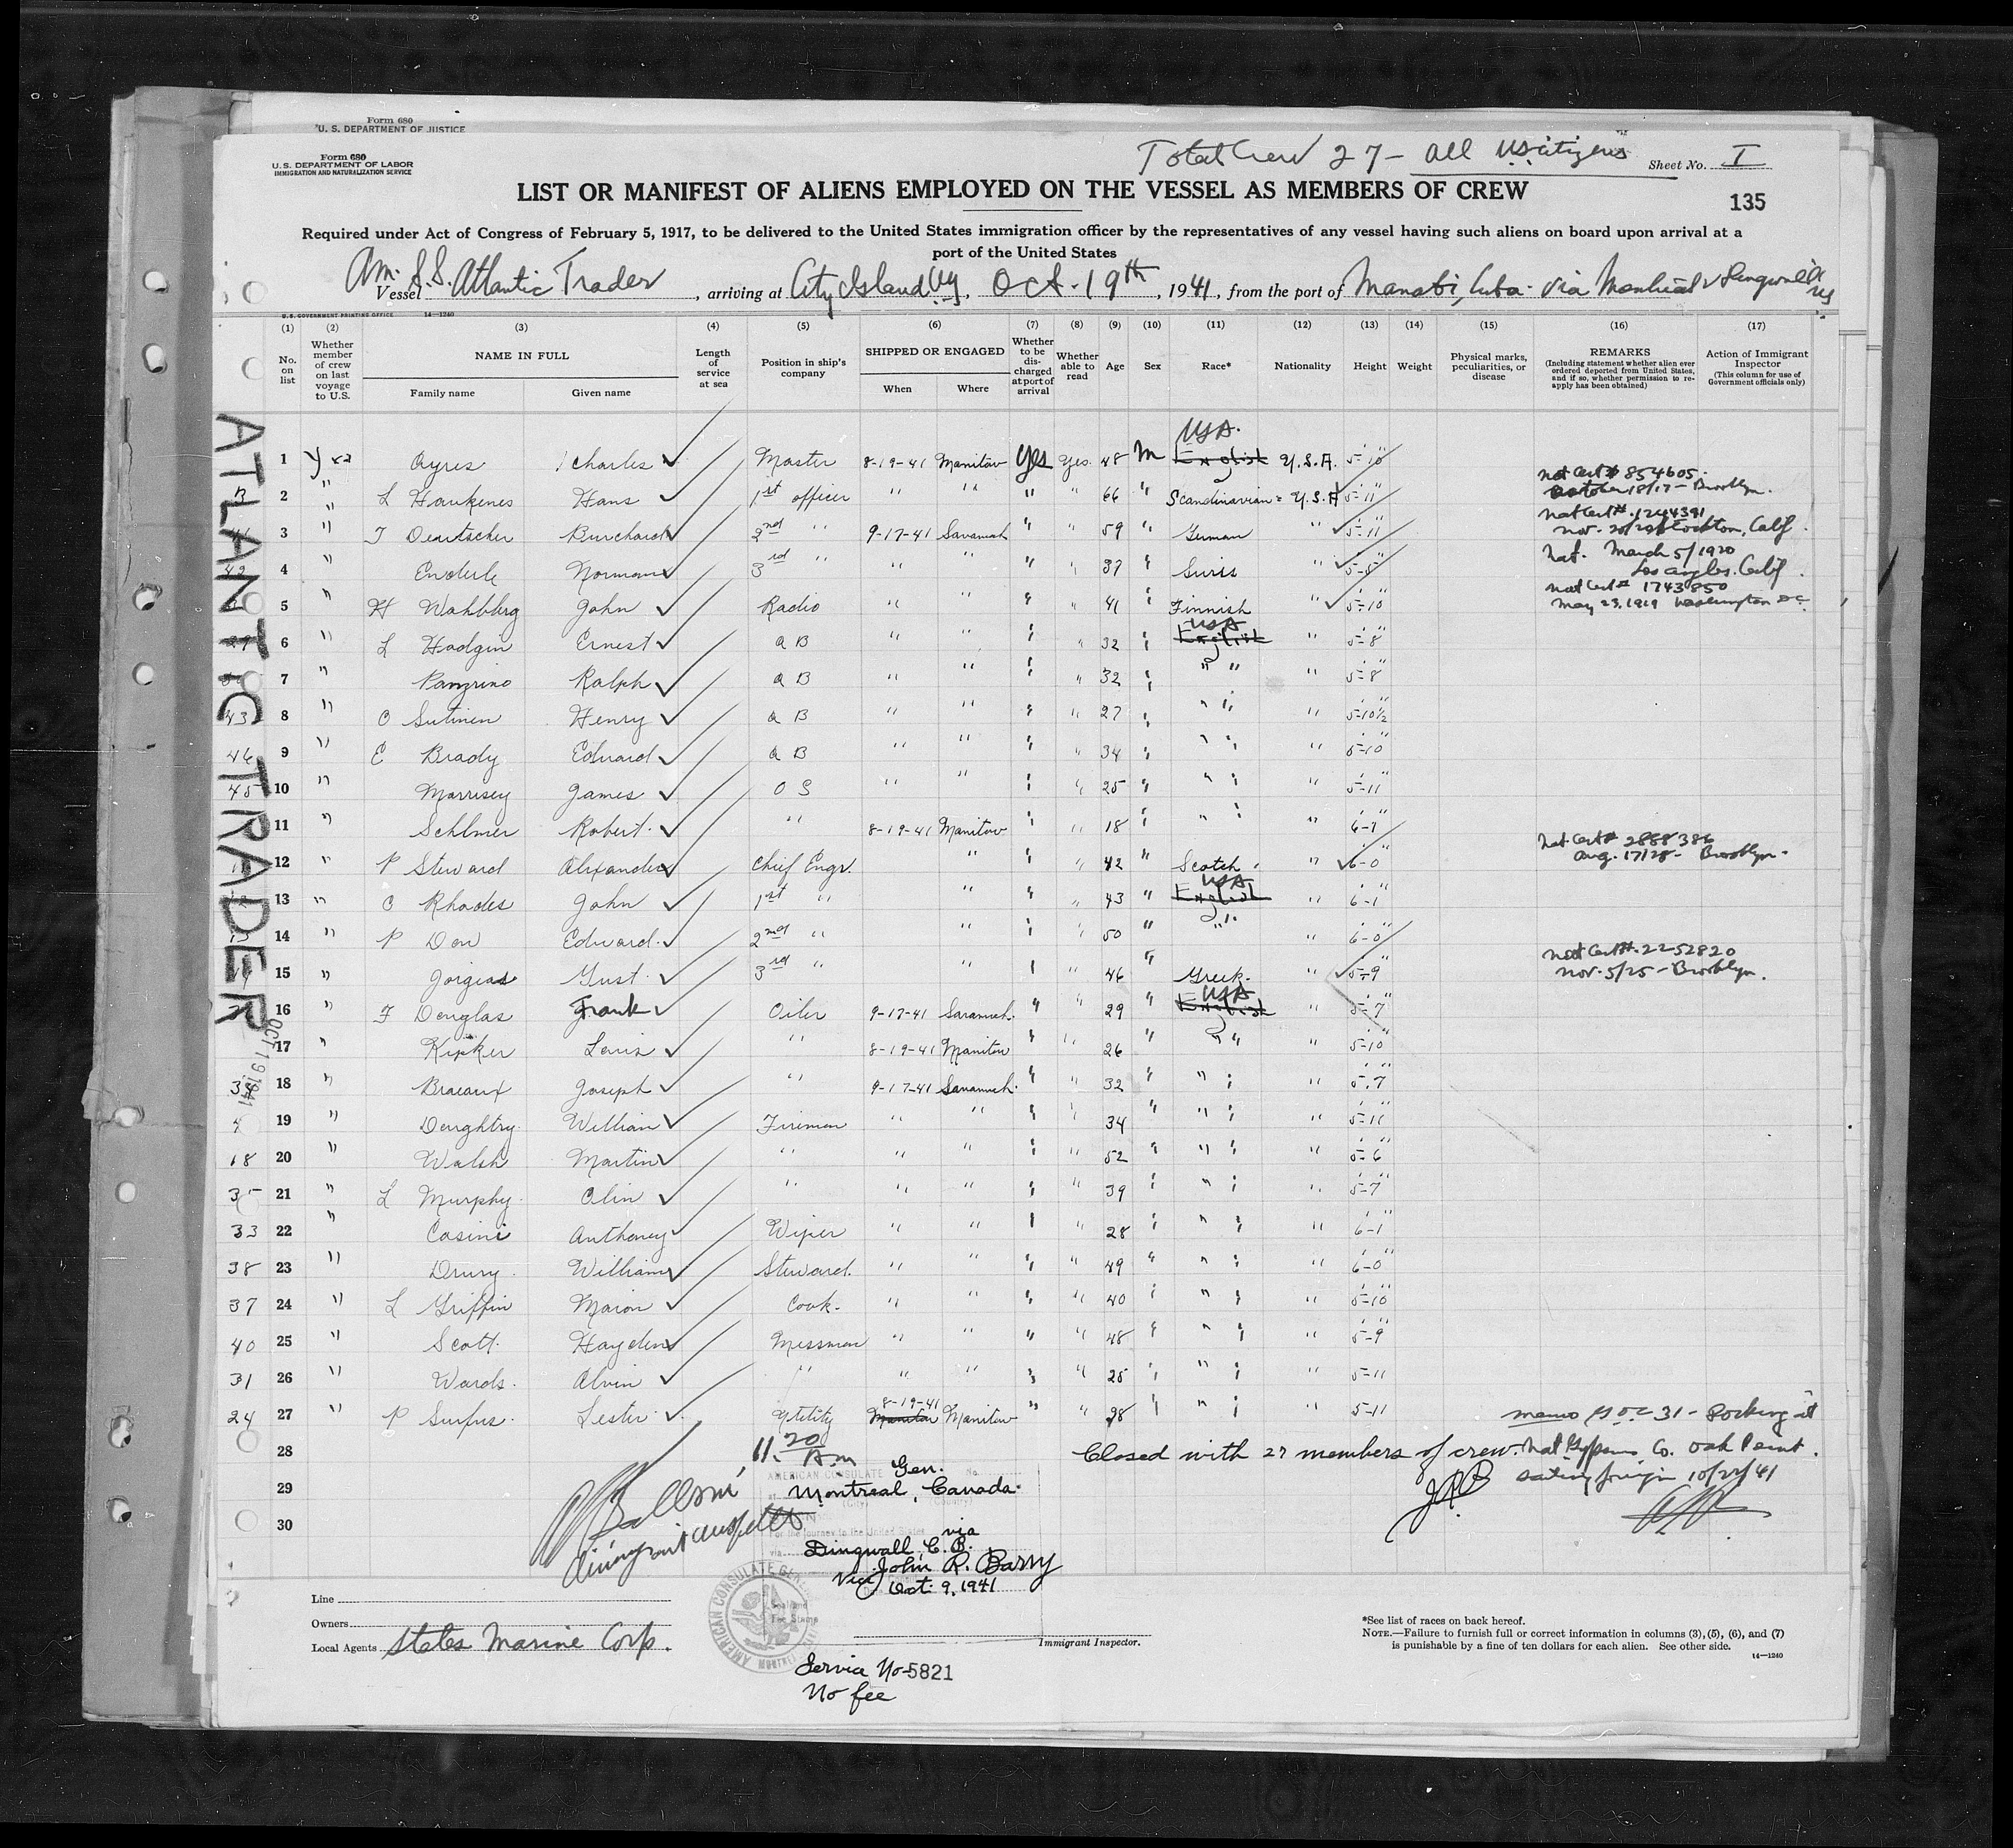 Form 680
U. S. DEPARTMENT OF JUSTICE
Form 680
U.S. DEPARTMENT OF LABOR
IMMIGRATION AND NATURALIZATION SERVICE
Total Crew 27 - All US citizens
Sheet No. I
LIST OR MANIFEST OF ALIENS EMPLOYED ON THE VESSEL AS MEMBERS OF CREW
135
Required under Act of Congress of February 5, 1917, to be delivered to the United States immigration officer by the representatives of any vessel having such aliens on board upon arrival at a
port of the United States
Am. S.S. Vessel Atlantic Trader, arriving at City Island NY, Oct. 19th, 1941, from the port of Manati, Cuba via Montreal &
U. S. GOVERNMENT PRINTING OFFICE 14-1240
(1) (2) (3) (4) (5) (6) (7) (8) (9) (10) (11) (12) (13) (14) (15) (16) (17)
No. on list
Whether member of crew on last voyage to U.S.
NAME IN FULL
Family name
Given name
Length of service at sea
Position in ship's company
SHIPPED OR ENGAGED
When
Where
Whether to be discharged at port of arrival
Whether able to read
Age
Sex
Race*
Nationality
Height
Weight
Physical marks, peculiarities, or disease
REMARKS
(Including statement whether alien ever ordered deported from United States, and if so, whether permission to reapply has been obtained)
Action of Immigrant Inspector
(This column for use of Government officials only)
ATLANTIC TRADER
OCT 19 1941
USA.
1 Yes Ayres Charles Master 8-19-41 Manitow Yes Yes 48 M English U.S.A. 5-10"
Nat Cert # 854605
2 " L Haukenes Hans 1st officer " " " " 66 " Scandinavian = U.S.A 5-11"
October 18/17 - Brooklyn.
Nat Cert #. 1244391
3 " T Deutscher Burchard 2nd " 9-17-41 Savannah " " 59 " German " 5-11"
Stockton, Calif.
Nat. March 5/1920
4 " Enderle Norman 3rd " " " " " 37 " Swiss " 5-5"
Los Angles. Calif.
Nat Cert # 1743850
5 " H Wahlberg John Radio " " " " 41 " Finnish " 5-10"
May 23, 1919 Washington DC
USA
6 " L Hodgin Ernest A B " " " " 32 " English " 5-8"
7 " Panzrino Ralph A B " " " " 32 " " " " 5-8"
43 8 " O Sutinen Henry A B " " " " 27 " " " " 5-10½
46 9 " E Brady Edward A B " " " " 34 " " " " 5-10"
45 10 " Marrisey James O S " " " " 25 " " " " 5-11"
11 " Schlmer Robert " 8-19-41 Manitow " " 18 " " " " 6-1"
Nat Cert # 2888386
12 " P Steward Alixander Chief Engr. " " " 42 " Scotch " 6-0"
Aug. 17/28 - Brooklyn.
USA
13 " O Rhodes John 1st " " " " 43 " English " 6-1"
14 " P Dow Edward 2nd " " " " 50 " " " " 6-0"
Nat Cert #. 2252820
15 " Jorgias Gust 3rd " " " " 46 " Greek " 5-9"
Nov. 5/25 - Brooklyn.
USA
16 " F Douglas Frank Oiler 9-17-41 Savannah " " 29 " English " 5-7"
17 " Kipker Louis " 8-19-41 Manitow " " 26 " " " " 5-10"
18 " Braeaux Joseph " 9-17-41 Savannah " " 32 " " " " 5-7"
19 " Doughtry William Fireman " " " " 34 " " " " 5-11"
18 20 " Walsh Martin " " " " " 52 " " " " 5-6"
21 " L Murphy Olin " " " " " 39 " " " " 5-7"
33 22 " Casini Anthoney Wiper " " " " 28 " " " " 6-1"
38 23 " Drury William Steward " " " " 49 " " " " 6-0"
37 24 " L Griffin Maion Cook " " " " 40 " " " " 5-10"
40 25 " Scott Hayden Messman " " " " 48 " " " " 5-9"
31 26 " Wards Alvin " " " " " 25 " " " " 5-11
24 27 " P Surfus Lester Utility 8-19-41 Manitow Manitow " " 28 " " " " 5-11
memo 31 - Docking at
28 Closed with 27 members of crew. Nat Gypsum Co. Oak Point.
11.20 A.m
29 sailing foreign 10/22/41
30
AMERICAN CONSULATE Gen. No.
at Montreal, Canada
(City) (Country)
For the journey to the United States
via Dingwall, C. B. via
Vice John R. Barry
Oct. 9, 1941
Immigrant Inspector
AMERICAN CONSULATE GENERAL
MONTREAL
Seal and Fee Stamp
Line
Owners
Local Agents States Marine Corp.
Immigrant Inspector.
Service No-5821
No fee
*See list of races on back hereof.
NOTE.—Failure to furnish full or correct information in columns (3), (5), (6), and (7)
is punishable by a fine of ten dollars for each alien. See other side.
14-1240